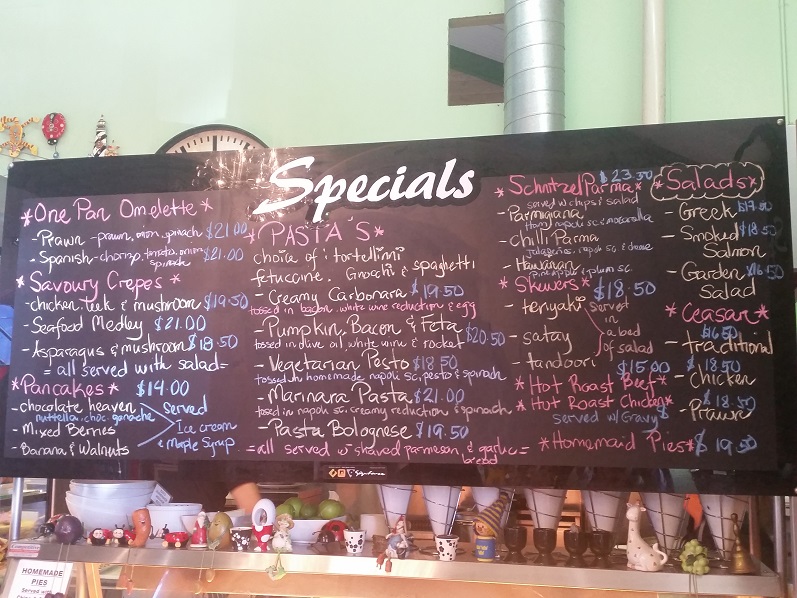 Specials
*One Pan Omelette*
- Prawn - prawn, onion, spinach $21.00
- Spanish - chorizo, tomato, onion $21.00
spinach
*Savoury Crepes*
- chicken, leek & mushroom $19.50
- Seafood Medley $21.00
- Asparagus & mushroom $18.50
= all served with salad =
*Pancakes* $14.00
- chocolate heaven
nuttella, choc. ganache
- Mixed Berries
- Banana & Walnuts
Served
Ice cream
& Maple Syrup
*PASTA'S
choice of: tortellini
fetuccine, Gnocchi & spaghetti
- Creamy Carbonara $19.50
tossed in bacon, white wine reduction & egg
- Pumpkin, Bacon & Feta $20.50
tossed in olive oil, white wine & rocket
- Vegetarian Pesto $18.50
tossed in homemade napoli sc, pesto & spinach
- Marinara Pasta $21.00
tossed in napoli sc, creamy reduction & spinach
- Pasta Bolognese $19.50
= all served w shaved parmesan & garlic =
bread
*Schnitzel Parma* $23.50
served w chips & salad
- Parmigiana
napoli sc & mozarella
- chilli Parma
Jalapeños, napoli sc & cheese
- Hawaiian
Pineapple & plum sc.
*Skewers* $18.50
- teriyaki
- satay
- tandoori
Served
in a
bed
of salad
$15.00
*Hot Roast Beef*
*Hot Roast Chicken*
served w/ Gravy
*Homemaid Pies* $19.50
*Salads*
- Greek $17.50
- Smoked $18.50
Salmon
- Garden $16.50
Salad
*Ceasar*
$16.50
- traditional
$18.50
- Chicken
$18.50
- Prawn
HOMEMADE
PIES
Served with